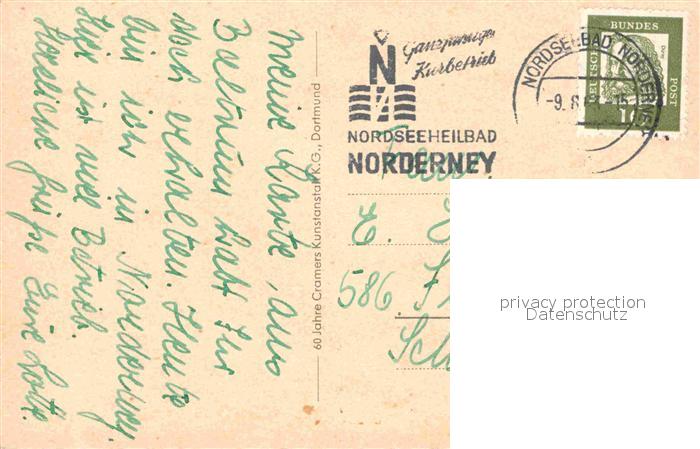 Meine Karte, aus
Baltrum habt Ihr
doch erhalten. Heute
bin ich in Norderney.
Hier ist viel Betrieb.
Herzliche Grüße Eure Lotte.
60 Jahre Cramers Kunstanstalt K.G., Dortmund
Ganzjähriger
Kurbetrieb
N
NORDSEEHEILBAD
NORDERNEY
NORDSEEBAD NORDERNEY
-9. 8
DEUTSCHE
BUNDES
POST
10
586
privacy protection
Datenschutz